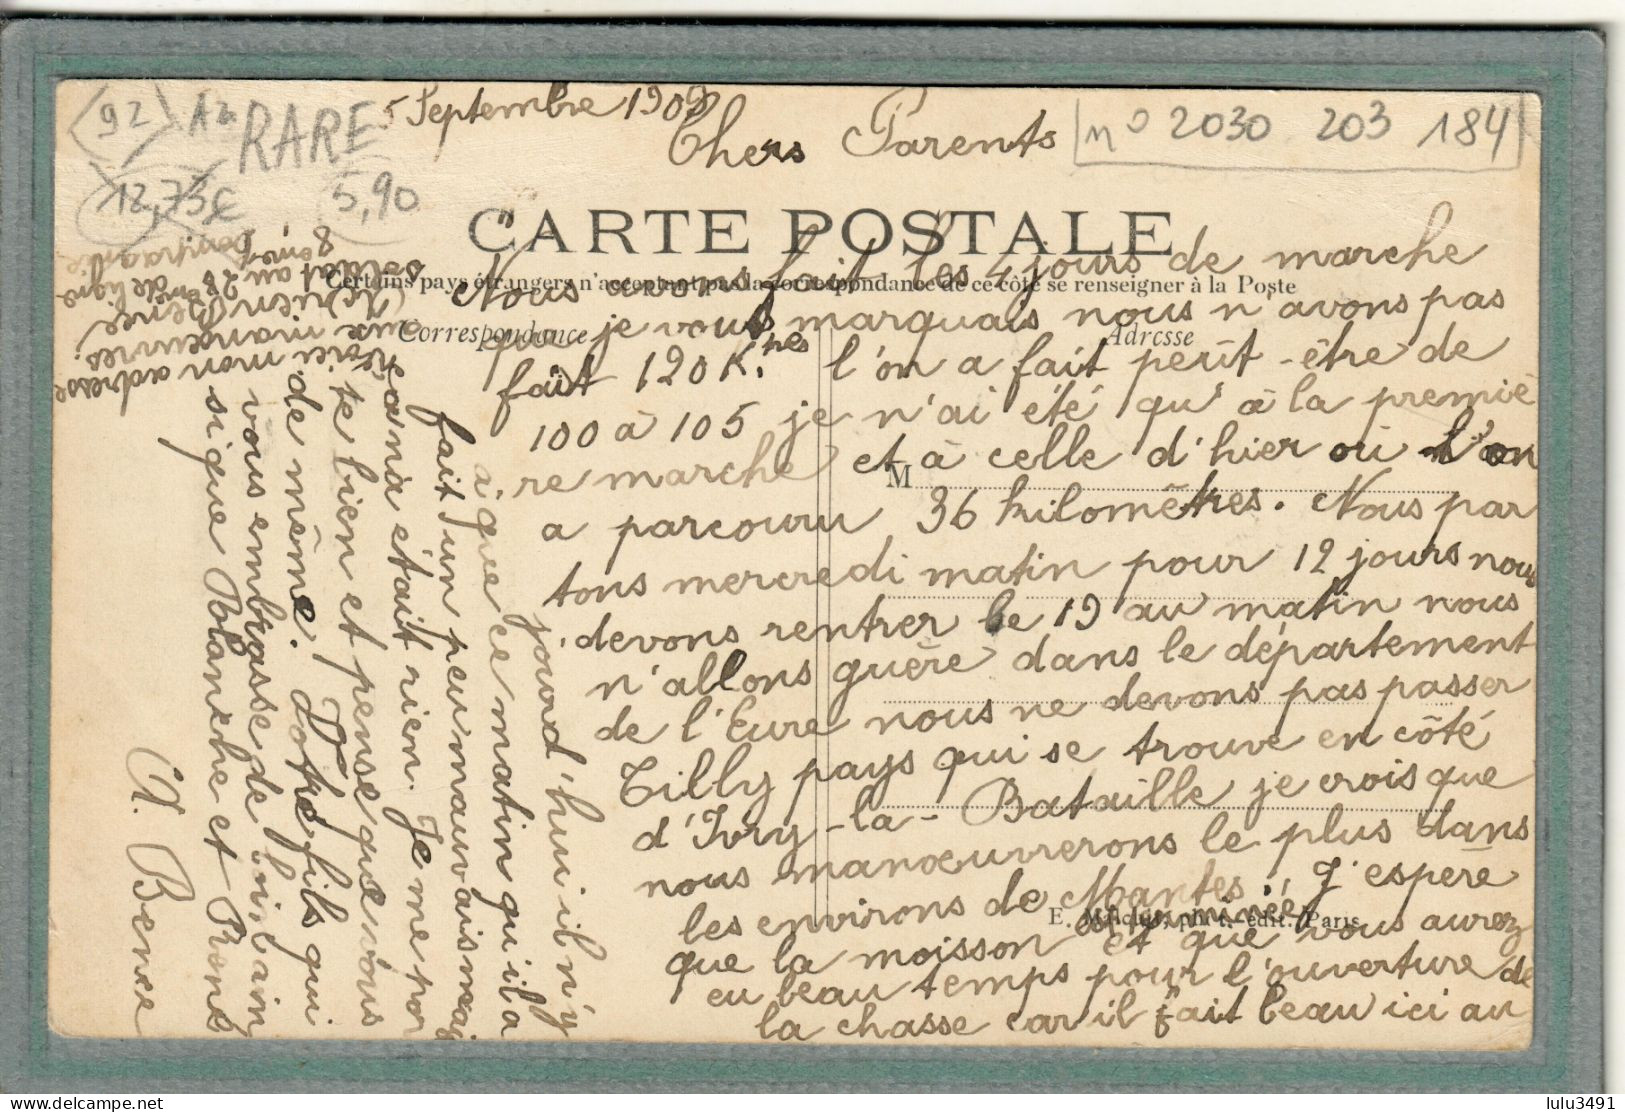 92
RARE
12,73€
5,90
n° 2030 203 184
5 Septembre 1909
Chers Parents
CARTE POSTALE
Certains pays étrangers n'acceptant pas la correspondance de ce côté se renseigner à la Poste
Correspondance
Adresse
M
E. Malcuit, phot.-édit. Paris
Nous avons fait les 4 jours de marche
que je vous marquais nous n'avons pas
fait 120 K.tres l'on a fait peut-être de
100 à 105 je n'ai été qu'à la premiè
re marche et à celle d'hier où l'on
a parcouru 36 kilomètres. Nous par
tons mercredi matin pour 12 jours nous
devons rentrer le 19 au matin nous
n'allons guère dans le département
de l'Eure nous ne devons pas passer
Tilly pays qui se trouve en côté
d'Ivry-la-Bataille je crois que
nous manœuvrerons le plus dans
les environs de Mantes. J'espère
que la moisson est terminée et que vous aurez
eu beau temps pour l'ouverture de
la chasse car il fait beau ici au
jourd'hui il n'y
a que ce matin qu'il a
fait un peu mauvais mais
cana était rien. Je me por
te bien et pense que vous
de même. Votre fils qui
vous embrasse de loin ainsi
sique Blanche et René
A. Bence
Voici mon adresse
aux manœuvres.
Adrien Bence
soldat au 28ème de ligne
8ème Compagnie